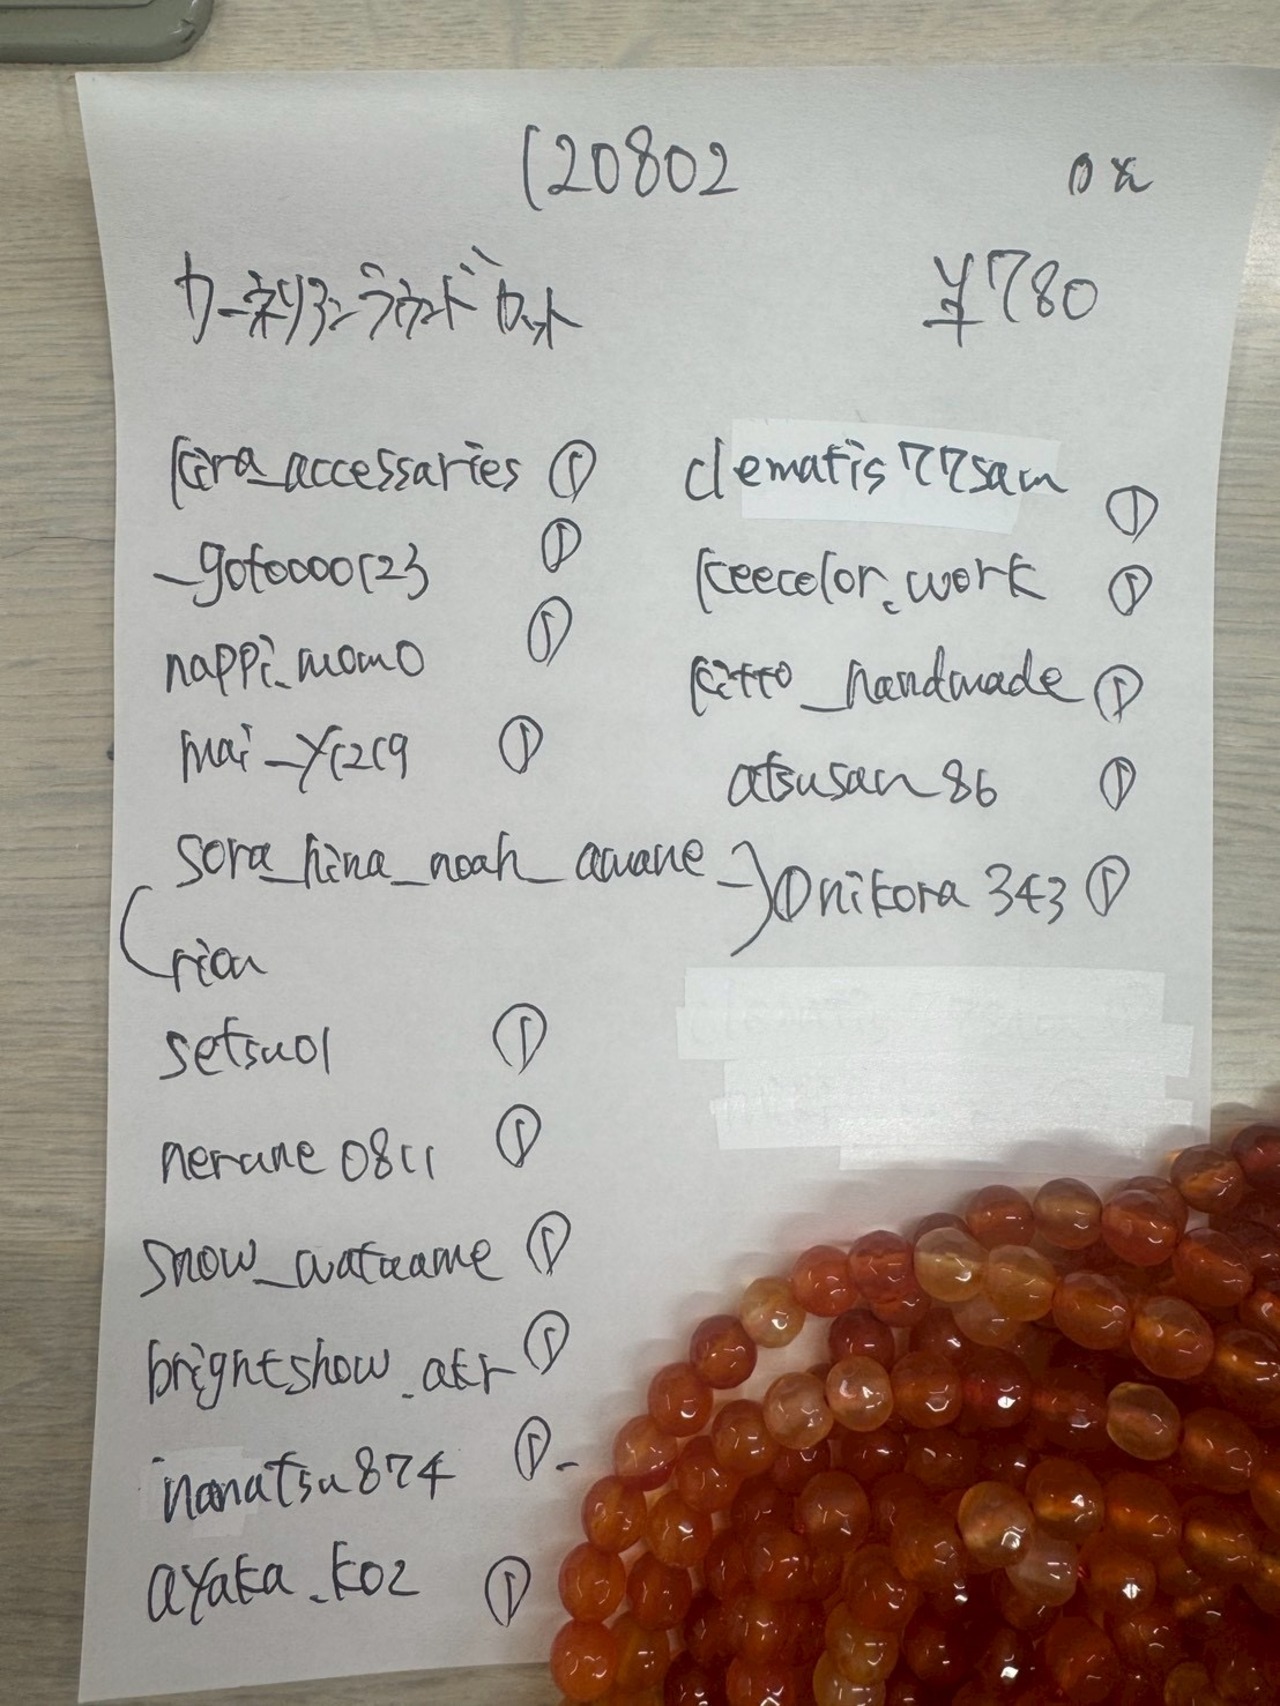 120802
カーネリアン ラウンドカット ¥780
kira_accessaries ①
_goto0000123 ①
nappi_momo ①
mai_y1219 ①
sora_hina_noah_amane_ ①
rion
setsu01 ①
nerune0811 ①
snow_watuame ①
brightshow_akr ①
nanatsu874 ①
ayaka_k02 ①
clematis77sam ①
keecolor_work ①
kitto_handmade ①
atsusan86 ①
nikora343 ①